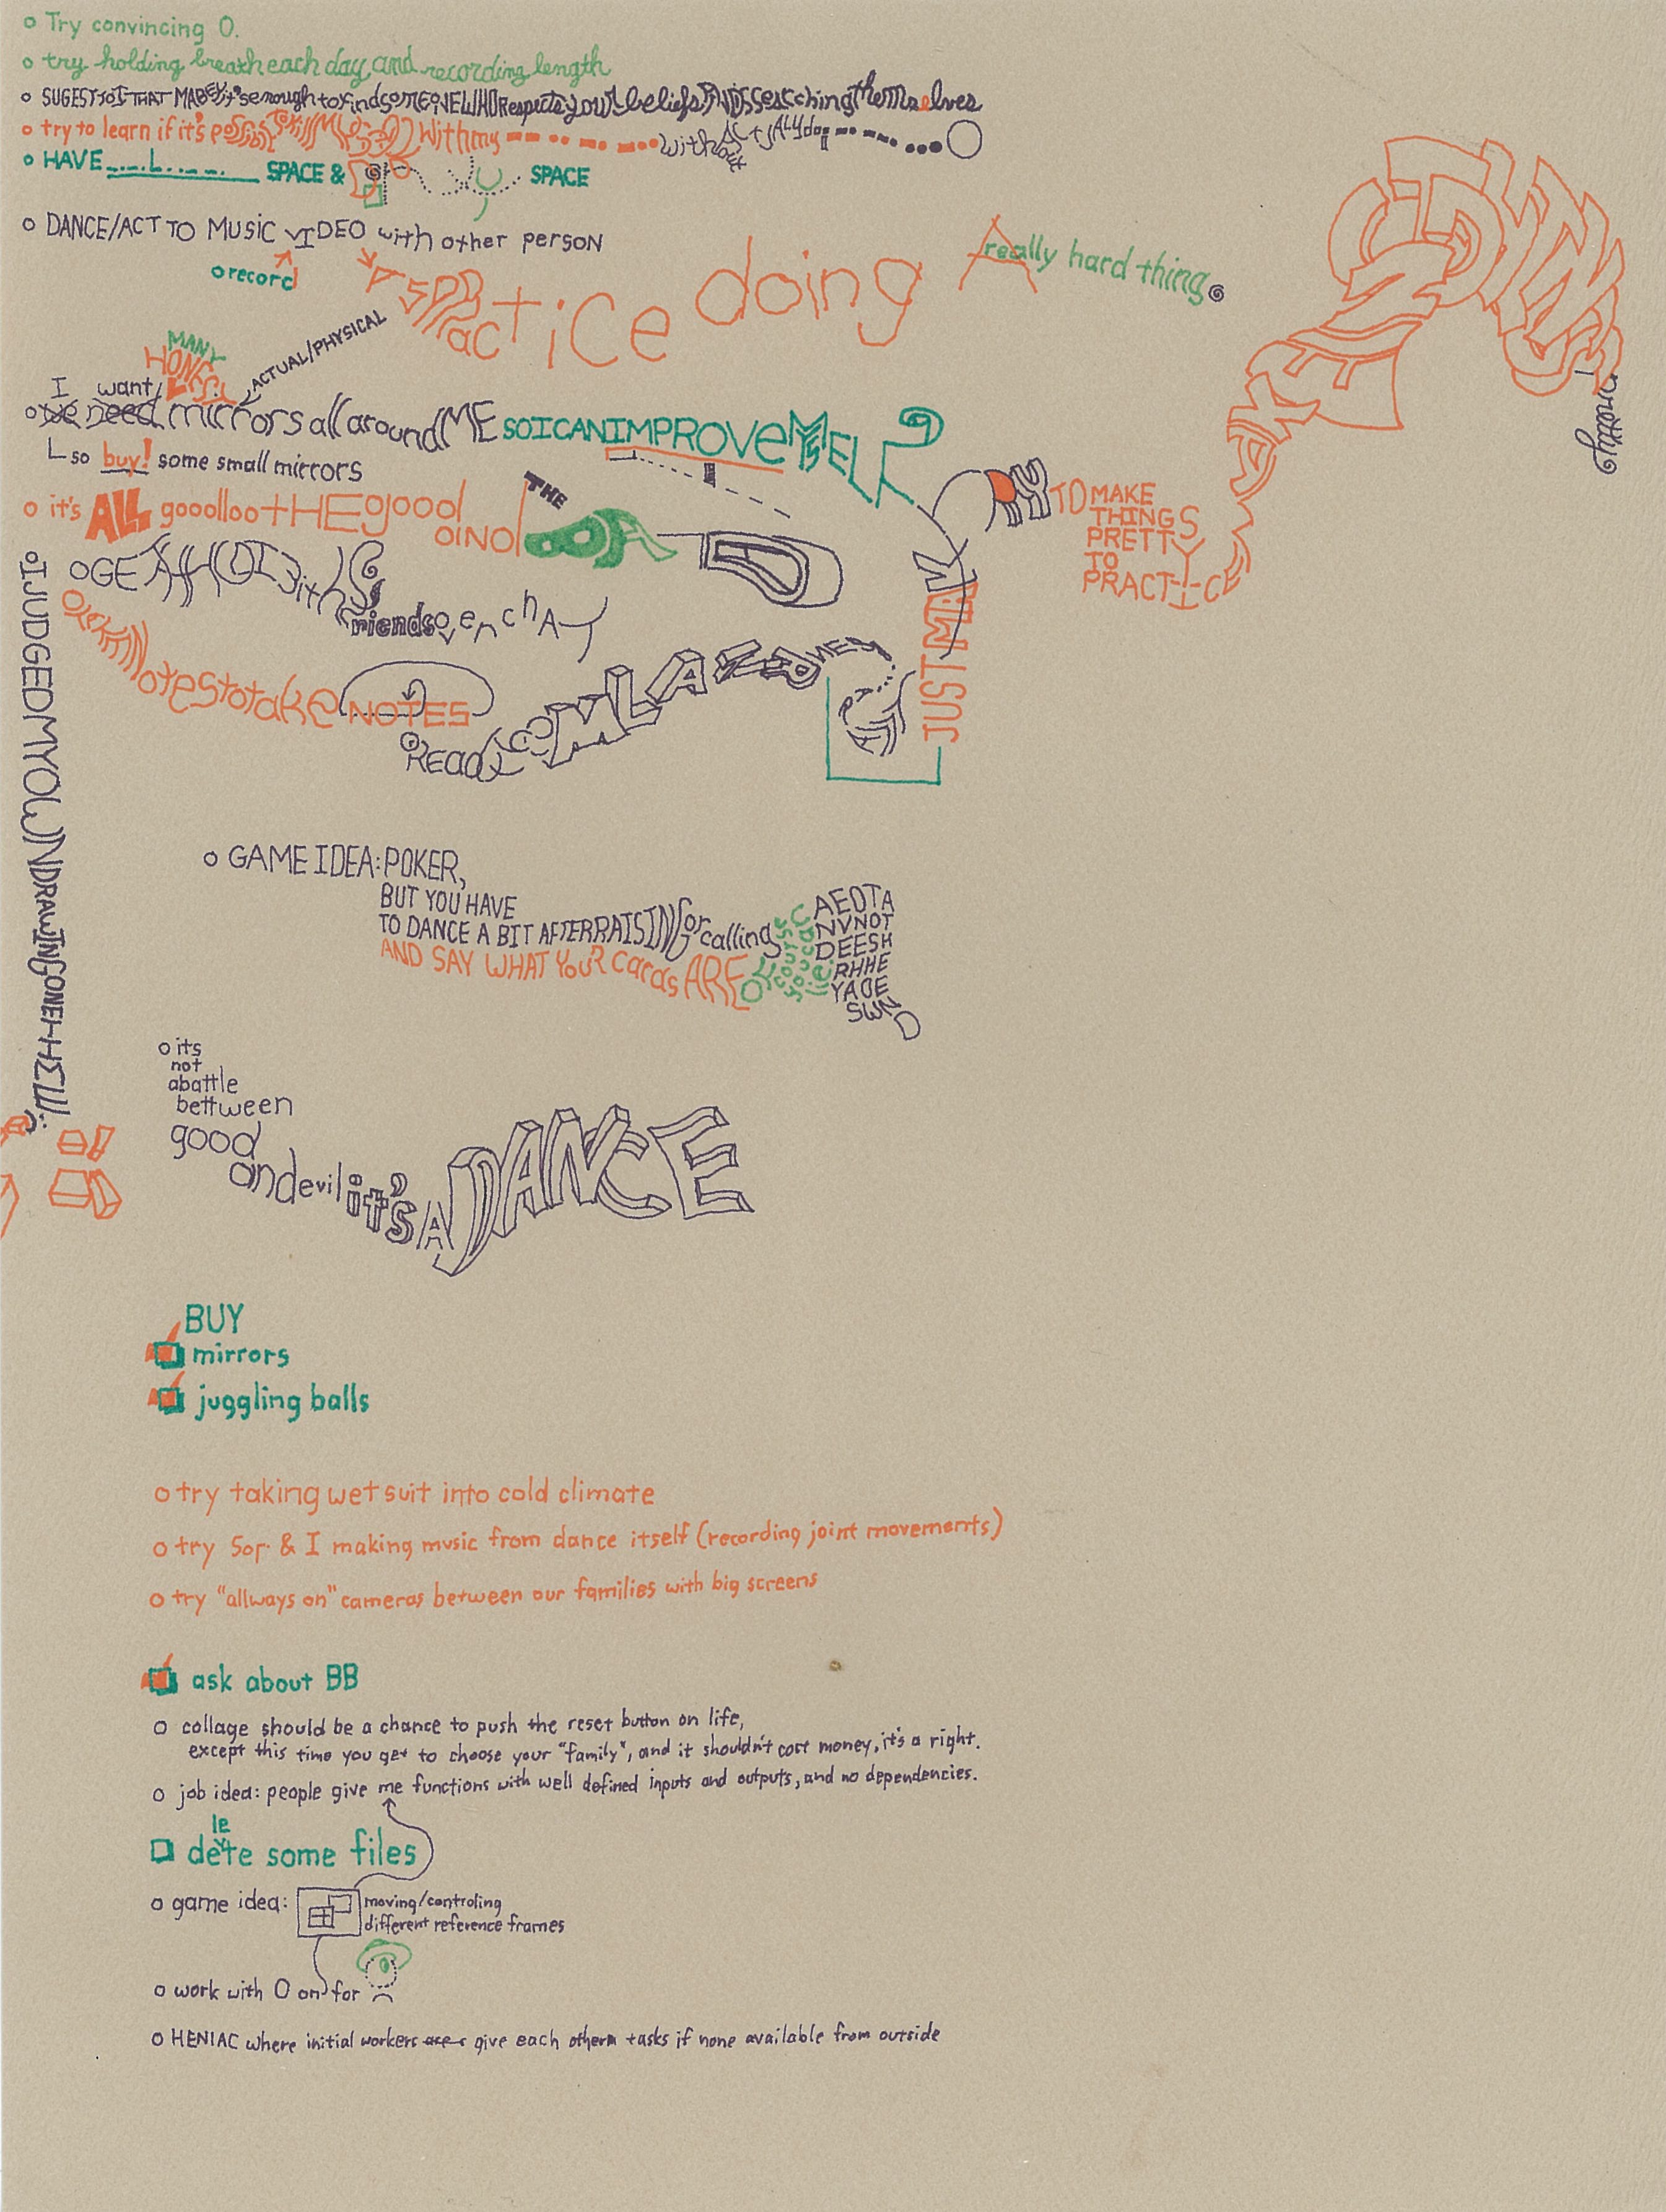 o Try convincing O.
o try holding breath each day, and recording length
o SUGEST to I THAT MABEY it's enough to find someONE WHO respects your beliefs AND is serching themselves
o try to learn if it's possible With my without ACTUALLY doing
o HAVE SPACE & SPACE
o DANCE/ACT TO MUSIC VIDEO with other person
o record
practice doing A really hard thing
ACTUAL/PHYSICAL
MANY
HONEST
I want
o we need mirrors all around ME SO I CAN IMPROVE MYSELF
so buy! some small mirrors
o it's ALL goodloo+THEgood
THE
TRY TO MAKE
THINGS
PRETTY
TO
PRACTICE
MAKE
o GET AHOLD with friends over chAT
o take notes to take NOTES
o Read
JUST MAKE
o I JUDGED MY OWN DRAWING ONE HELL
o GAME IDEA: POKER,
BUT YOU HAVE
TO DANCE A BIT AFTER RAISING or calling
AND SAY WHAT YOUR cards ARE
OF course you can lie
AEOTA
NVNOT
DEESH
RHHE
YAOE
SWN
D
o its
not
abattle
bettween
good
andevil it's A DANCE
BUY
mirrors
juggling balls
o try taking wetsuit into cold climate
o try Sof & I making music from dance itself (recording joint movements)
o try "allways on" cameras between our families with big screens
ask about BB
o collage should be a chance to push the reset button on life,
except this time you get to choose your "family", and it shouldn't cost money, it's a right.
o job idea: people give me functions with well defined inputs and outputs, and no dependencies.
le
dete some files
o game idea: moving/controling
different reference frames
o work with O on for
o HENIAC where initial workers give each other tasks if none available from outside